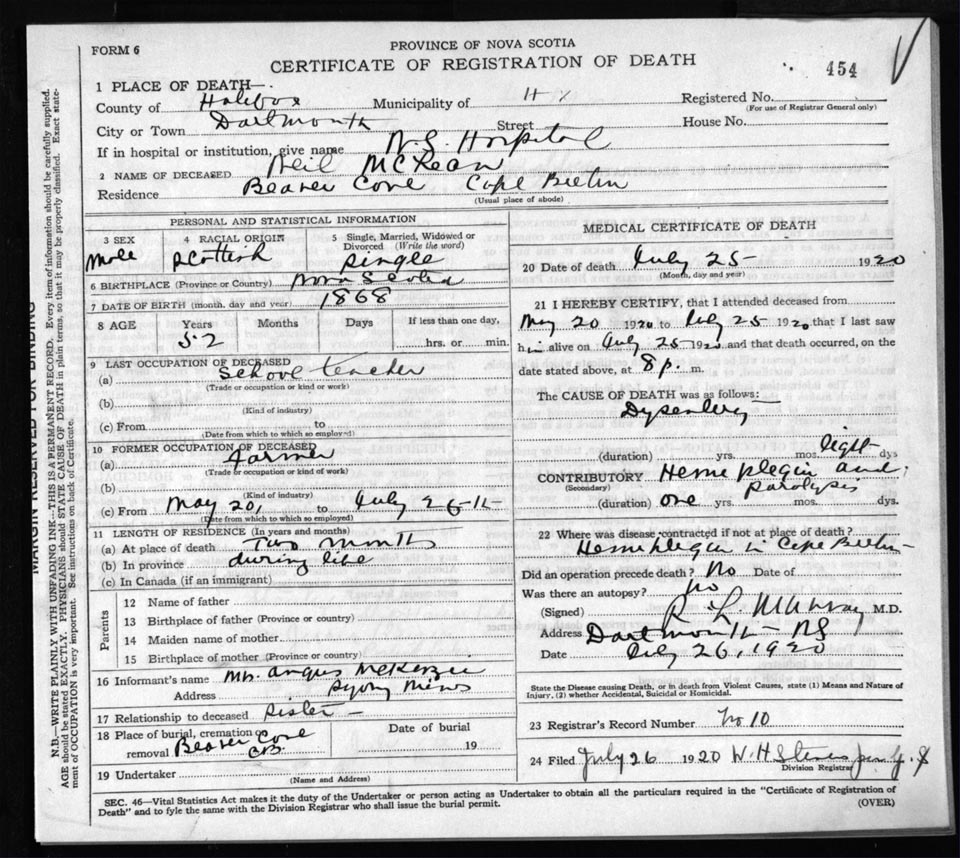 FORM 6
PROVINCE OF NOVA SCOTIA
CERTIFICATE OF REGISTRATION OF DEATH
454
1 PLACE OF DEATH—
County of Halifax Municipality of Hx Registered No.
(For use of Registrar General only)
City or Town Dartmouth Street House No.
If in hospital or institution, give name N.S. Hospital
2 NAME OF DECEASED Neil McLean
Residence Beaver Cove Cape Breton
(Usual place of abode)
MARGIN RESERVED FOR BINDING
N.B.—WRITE PLAINLY WITH UNFADING INK—THIS IS A PERMANENT RECORD. Every item of information should be carefully supplied.
AGE should be stated EXACTLY. PHYSICIANS should STATE CAUSE OF DEATH in plain terms, so that it may be properly classified. Exact state-
ment of OCCUPATION is very important. See instructions on back of Certificate.
PERSONAL AND STATISTICAL INFORMATION
3 SEX 4 RACIAL ORIGIN 5 Single, Married, Widowed or
Divorced (Write the word)
Male Scottish single
6 BIRTHPLACE (Province or Country) Nova Scotia
7 DATE OF BIRTH (month, day and year) 1868
8 AGE Years Months Days If less than one day,
52 hrs. or min.
9 LAST OCCUPATION OF DECEASED
(a) School teacher
(Trade or occupation or kind or work)
(b)
(Kind of industry)
(c) From to
(Date from which to which so employed)
10 FORMER OCCUPATION OF DECEASED
(a) Farmer
(Trade or occupation or kind of work)
(b)
(Kind of industry)
(c) From May 20, to July 26th
(Date from which to which so employed)
11 LENGTH OF RESIDENCE (In years and months)
(a) At place of death Two months
(b) In province during life
(c) In Canada (if an immigrant)
Parents
12 Name of father
13 Birthplace of father (Province or country)
14 Maiden name of mother
15 Birthplace of mother (Province or country)
16 Informant's name Mrs. Angus McKenzie
Address Sydney Mines
17 Relationship to deceased sister
18 Place of burial, cremation or
removal Beaver Cove
C.B.
Date of burial
19
19 Undertaker
(Name and Address)
MEDICAL CERTIFICATE OF DEATH
20 Date of death July 25 1920
(Month, day and year)
21 I HEREBY CERTIFY, that I attended deceased from
May 20 1920 to July 25 1920 that I last saw
him alive on July 25 1920 and that death occurred, on the
date stated above, at 8 p. m.
The CAUSE OF DEATH was as follows:
Dysentery
(duration) yrs. mos. eight dys
CONTRIBUTORY Hemeplegia and
(Secondary) paralysis
(duration) one yrs. mos. dys.
22 Where was disease contracted if not at place of death?
Hemeplegia in Cape Breton
Did an operation precede death? No Date of
Was there an autopsy? No
(Signed) R L Murray M.D.
Address Dartmouth NS
Date July 26, 1920
State the Disease causing Death, or in death from Violent Causes, state (1) Means and Nature of
Injury, (2) whether Accidental, Suicidal or Homicidal.
23 Registrar's Record Number No 10
24 Filed July 26 1920 W. H.
Division Registrar
SEC. 46—Vital Statistics Act makes it the duty of the Undertaker or person acting as Undertaker to obtain all the particulars required in the "Certificate of Registration of
Death" and to fyle the same with the Division Registrar who shall issue the burial permit.
(OVER)